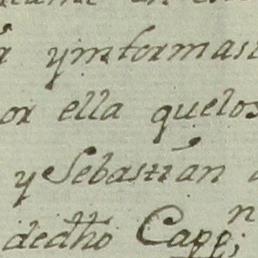 ymformasi
or ella quelos
y Sebastián
dedho Capp.n;